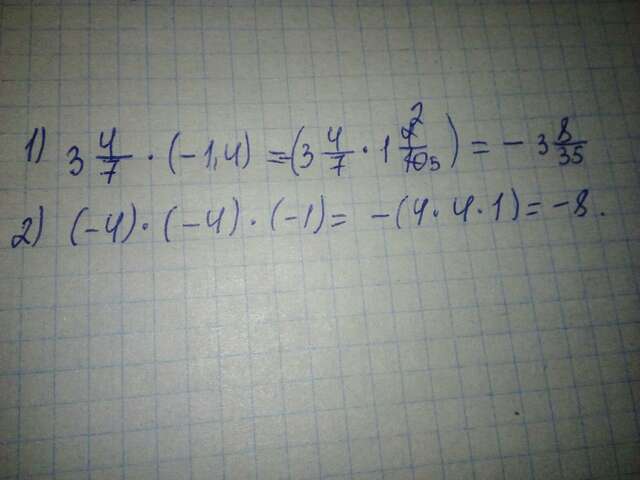 1) 3 4/7 · (-1,4) = -(3 4/7 · 1 4 2/10 5) = - 3 8/35
2) (-4) · (-4) · (-1) = -(4 · 4 · 1) = -8.